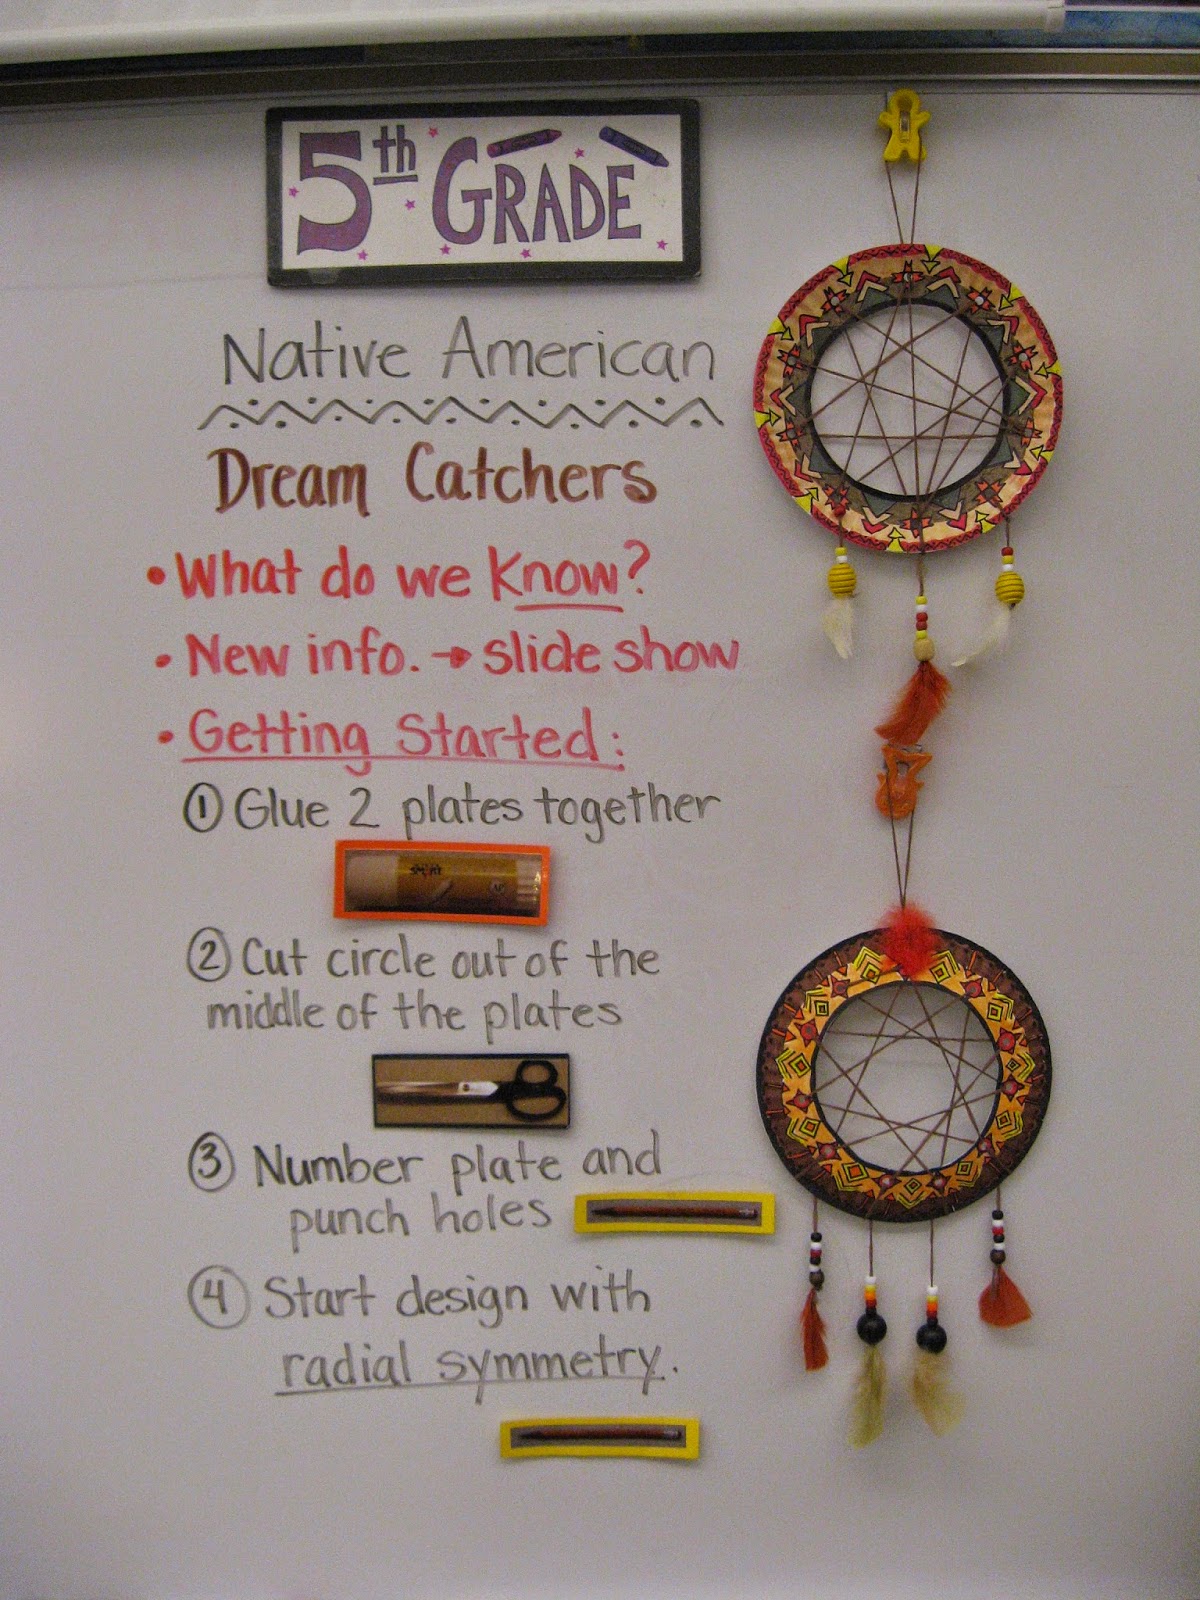 5th GRADE
Native American
Dream Catchers
• What do we know?
• New info. → slide show
• Getting Started:
① Glue 2 plates together
② Cut circle out of the
middle of the plates
③ Number plate and
punch holes
④ Start design with
radial symmetry.